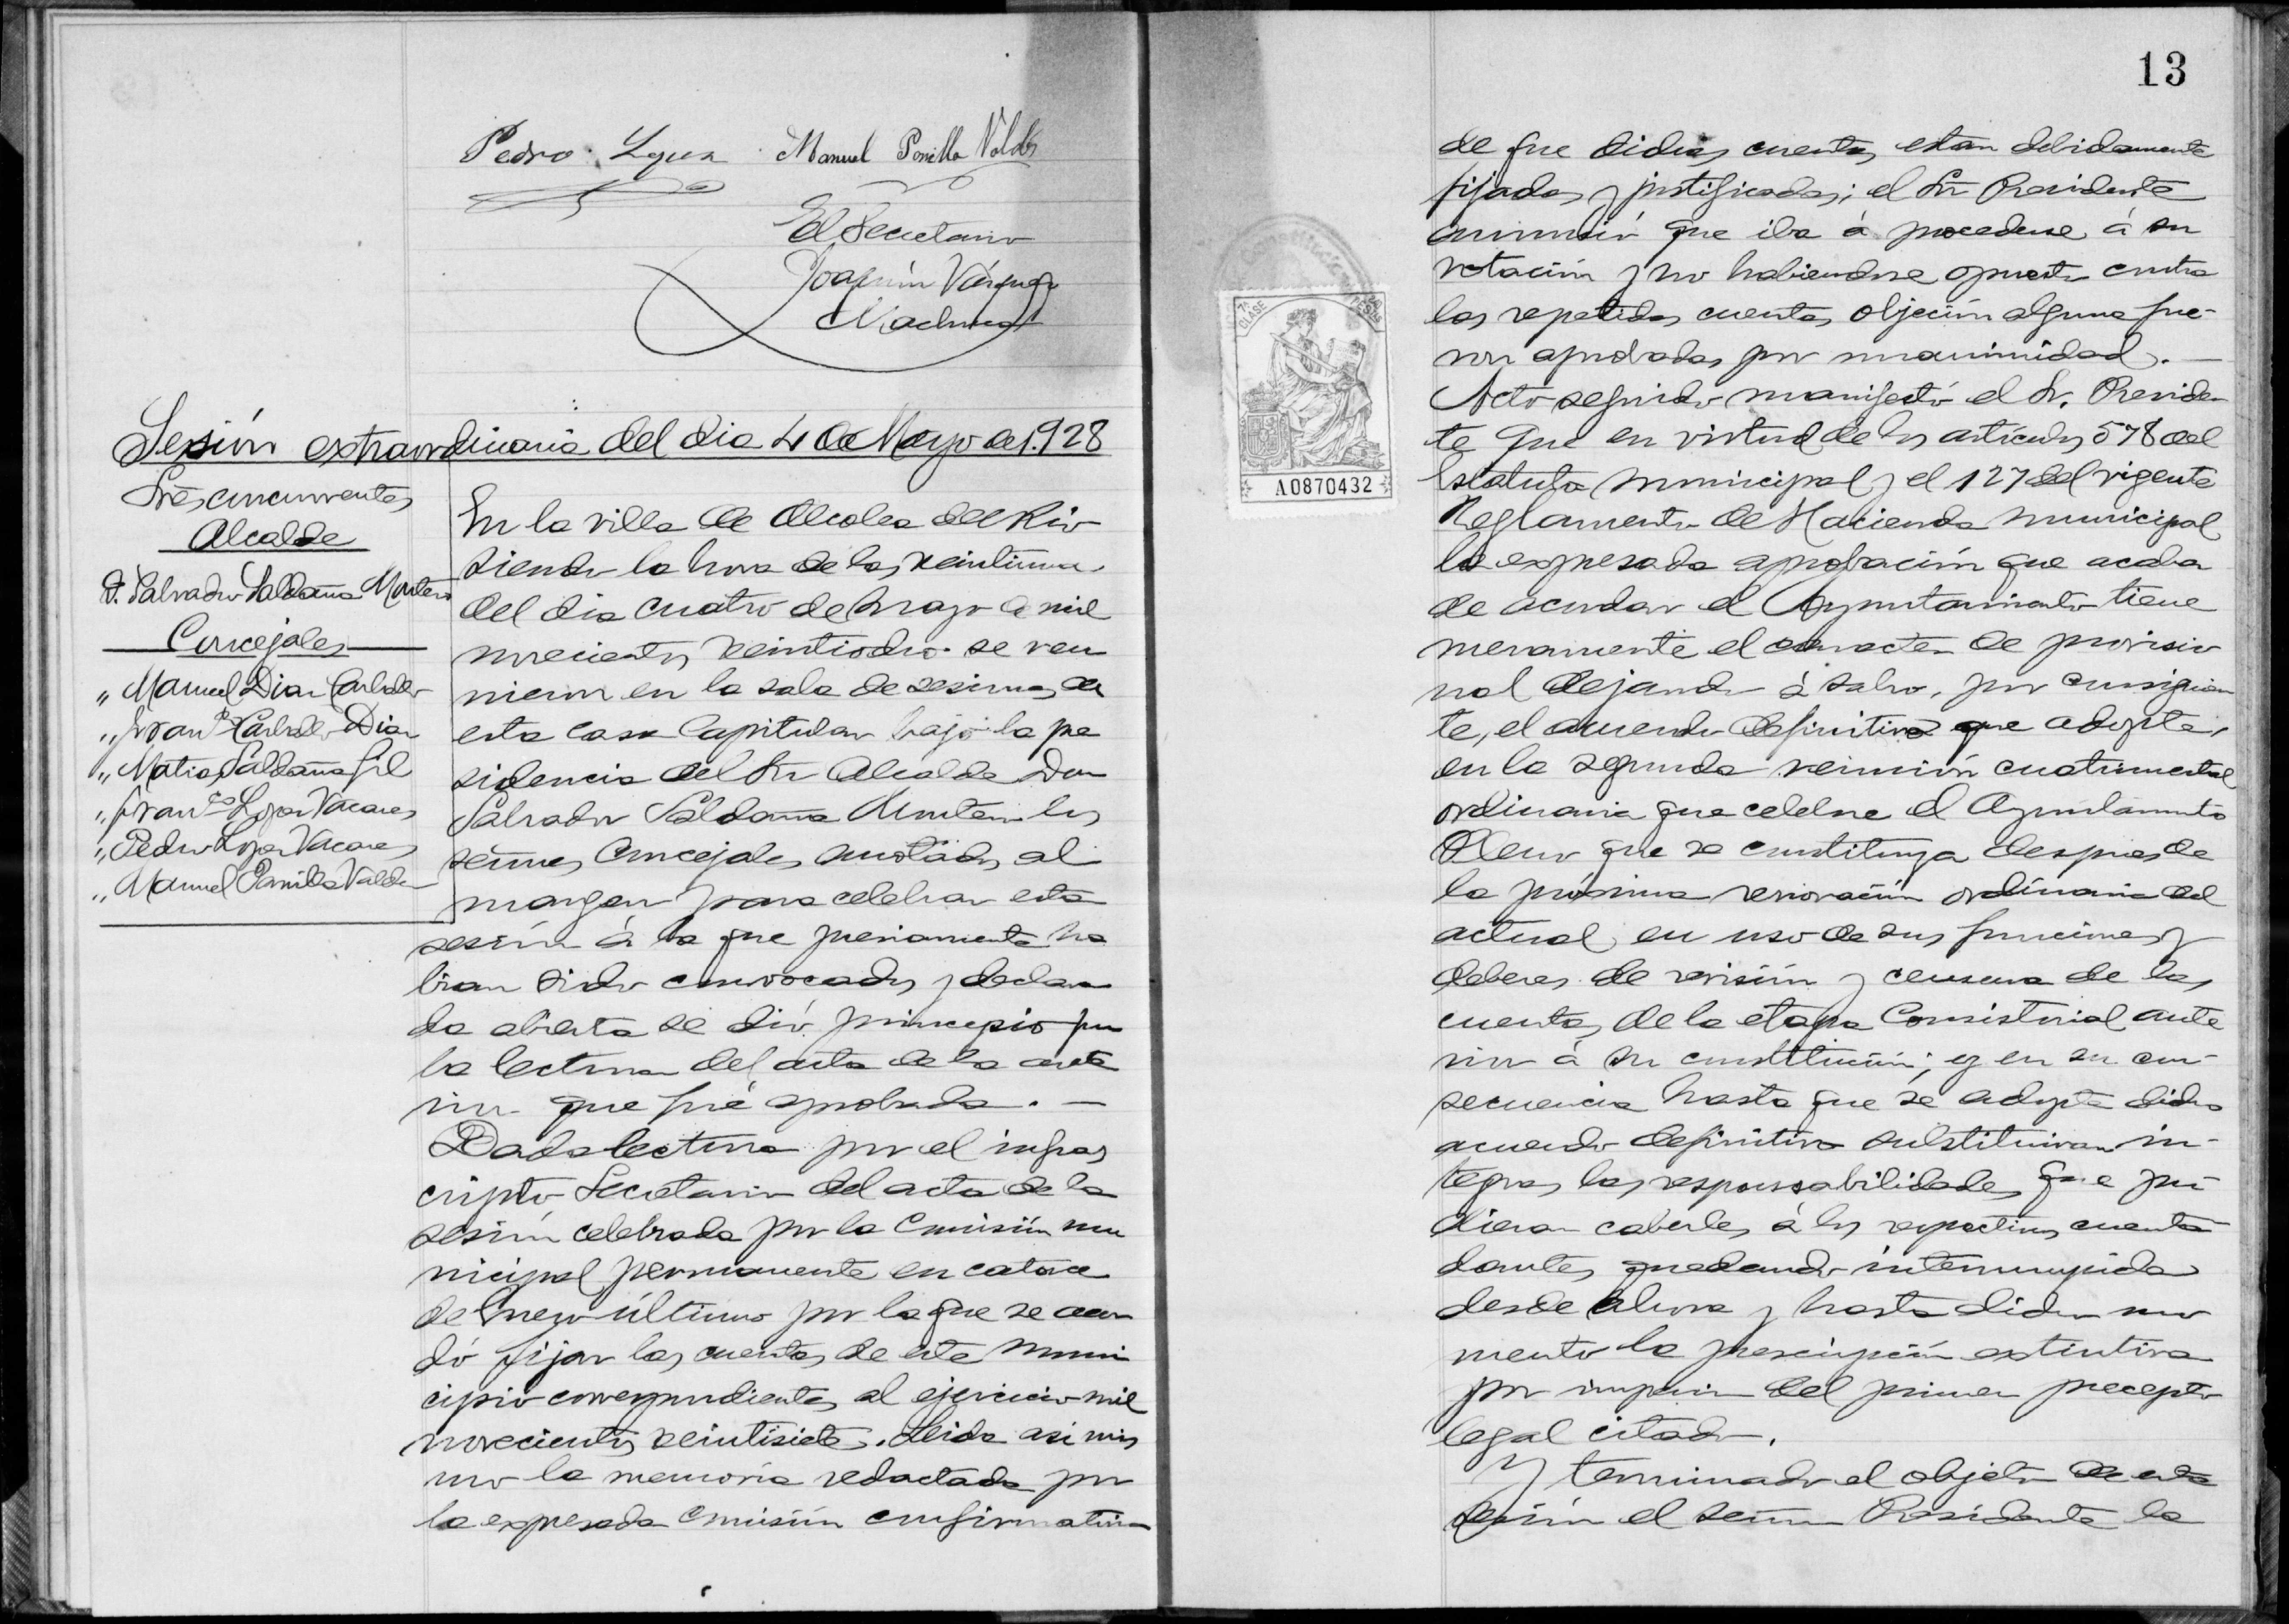 13
Pedro Lopez Manuel Parrilla Valdes
El Secretario
Joaquín Vázquez
Sesión extraordinaria del dia 4 de Mayo de 1.928
Sres concurrentes
Alcalde
D. Salvador Saldaña Montero
Concejales
" Manuel Diaz Carballo
" Franco Carballo Diaz
" Matias Saldaña Gil
" Franco Lopez Vacares
" Pedro Lopez Vacares
" Manuel Parrilla Valdes
En la villa de Alcolea del Rio
siendo la hora de las veintiuna
del dia cuatro de mayo de mil
novecientos veintiocho se reu
nieron en la sala de sesiones de
esta casa Capitular bajo la pre
sidencia del Sr Alcalde Don
Salvador Saldaña Montero los
señores Concejales anotados al
margen para celebrar esta
sesión á la que previamente ha
bian sido convocados y declara
da abierta se dió principio por
la lectura del acta de la ante
rior que fué aprobada. —
Dada lectura por el infras
cripto Secretario del acta de la
sesión celebrada por la Comisión mu
nicipal permanente en catorce
de Enero último por la que se acor
dó fijar las cuentas de este muni
cipio correspondientes al ejercicio mil
novecientos veintisiete. Leida asi mis
mo la memoria redactada por
la expresada Comisión confirmatoria
de que dichas cuentas estan debidamente
fijadas y justificadas; el Sr Presidente
anunció que iba á procederse á su
votación y no habiendose opuesto contra
las repetidas cuentas objeción alguna fue-
ron aprobadas por unanimidad. —
Acto seguido manifestó el Sr. Presiden
te que en virtud de los artículos 578 del
Estatuto municipal y el 127 del vigente
Reglamento de Hacienda municipal
la expresada aprobación que acaba
de acordar el Ayuntamiento tiene
meramente el caracter de provisio
nal dejando á salvo, por consiguien
te, el acuerdo definitivo que adopte,
en la segunda reunión cuatrimestral
ordinaria que celebre el Ayuntamiento
Pleno que se constituya despues de
la próxima renovación ordinaria del
actual, en uso de sus funciones y
deberes de revisión y censura de las
cuentas de la etapa Consistorial ante
rior á su constitución; y en su con-
secuencia hasta que se adopte dicho
acuerdo definitivo substituiran in-
tegras las responsabilidades que pu
dieran caberles á los respectivos cuenta
dantes quedando interrumpida
desde ahora y hasta dicho mo
mento la prescripción extintiva
por imperio del primer precepto
legal citado.
Y terminado el objeto de esta
sesión el señor Presidente la
7ª CLASE
PESETAS
A0870432